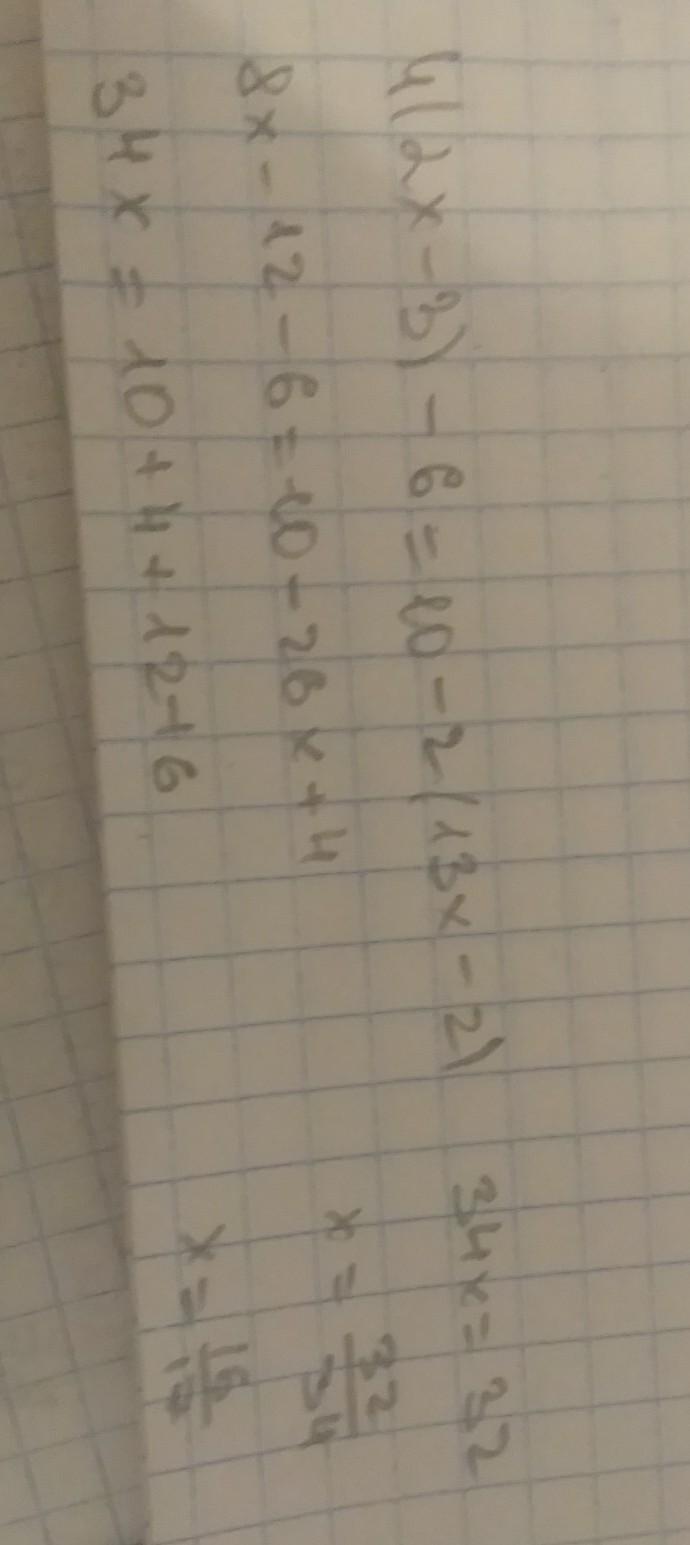 4(2x-3)-6=10-2(13x-2)
8x-12-6=10-26x+4
34x=10+4+12+6
34x=32
x=32/34
x=16/17